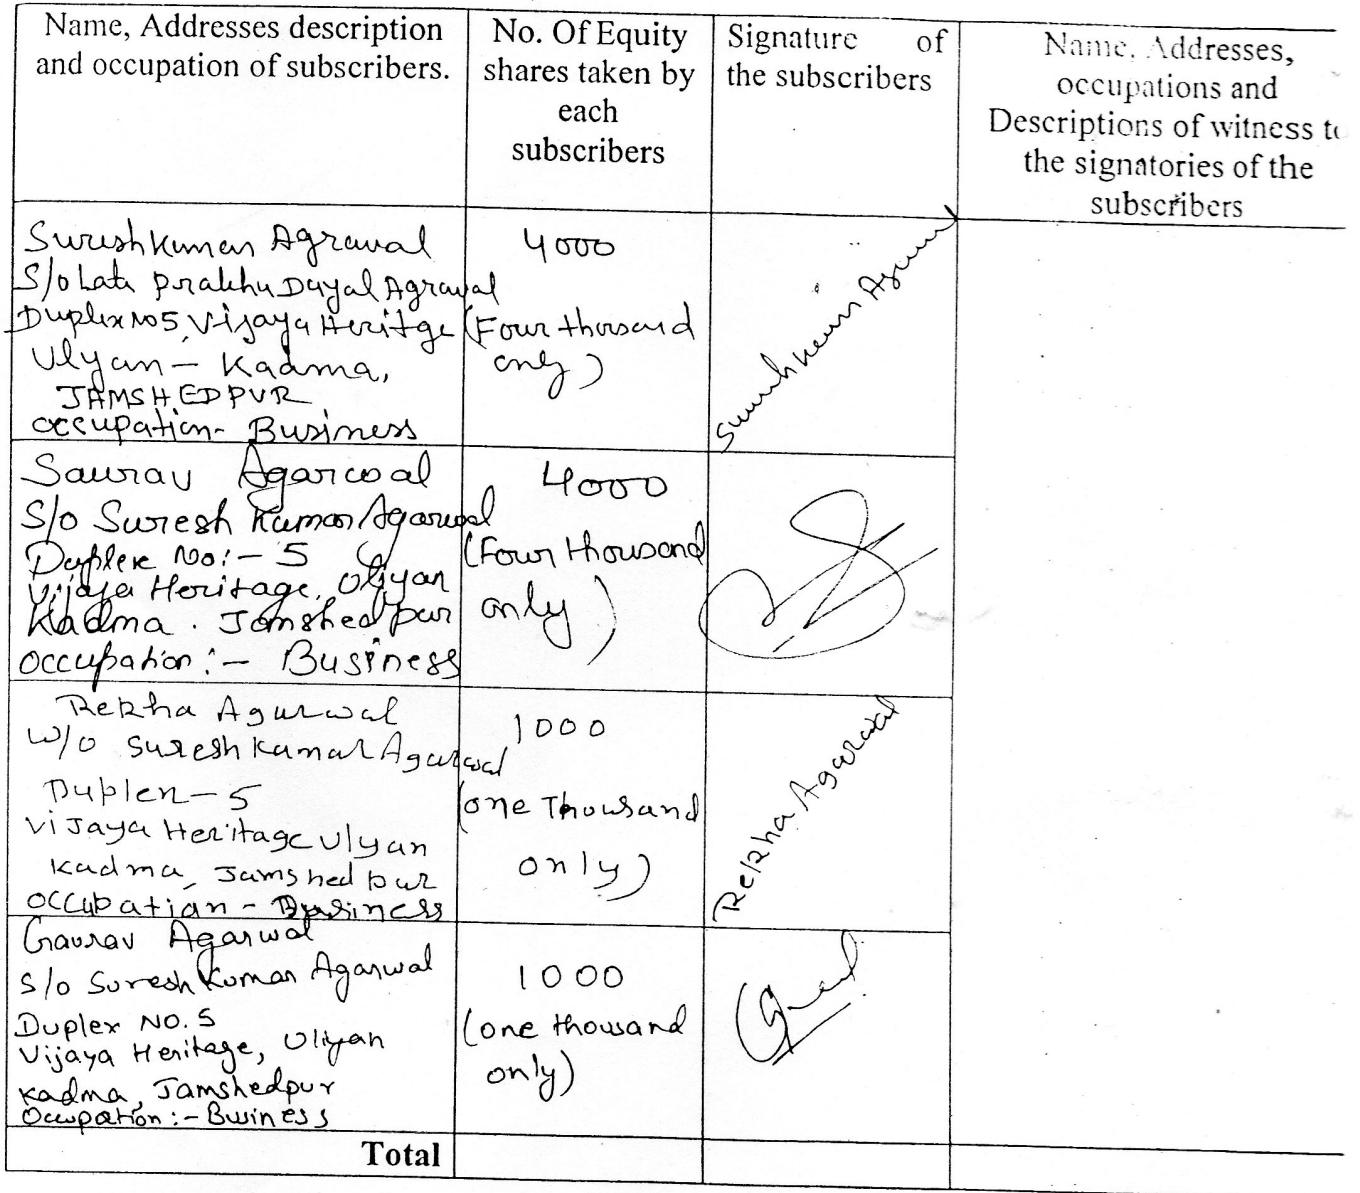 Name, Addresses description
and occupation of subscribers.
No. Of Equity
shares taken by
each
subscribers
Signature of
the subscribers
Name, Addresses,
occupations and
Descriptions of witness to
the signatories of the
subscribers
Sureshkumar Agrawal
S/o Late Prabhu Dayal Agrawal
Duplex No 5, Vijaya Heritge
Ulyan - Kadma,
JAMSHEDPUR
occupation- Business
4000
(Four thousand
only)
Sureshkumar Agrawal
Saurav Agarwal
S/o Suresh Kumar Agarwal
Duplex No:- 5
Vijaya Heritage, Uliyan
Kadma. Jamshedpur
occupation:- Business
4000
(Four thousand
only)
Rekha Agarwal
W/o Suresh Kumar Agarwal
Duplex-5
Vijaya Heritage Ulyan
Kadma, Jamshedpur
occupation - Business
1000
(one Thousand
only)
Rekha Agarwal
Gaurav Agarwal
S/o Suresh Kumar Agarwal
Duplex NO. 5
Vijaya Heritage, Uliyan
Kadma, Jamshedpur
Occupation:- Business
1000
(one thousand
only)
Total